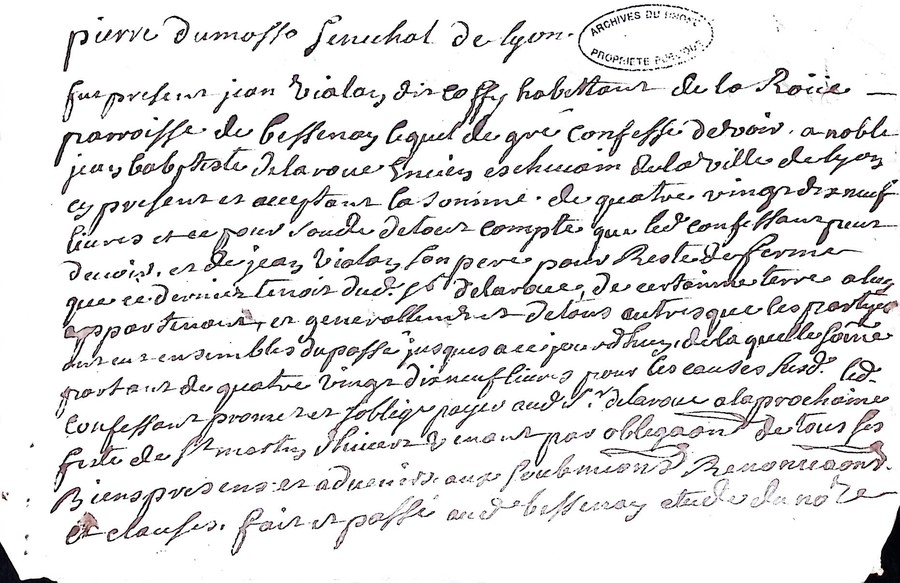 pierre dumosso senechal de lyon.
ARCHIVES DU RHONE
PROPRIETE PUBLIQUE
fut present jean vialay dit coffy habittant de la Roüe
parroisse de bessenay lequel de gré confesse devoir a noble
jean baptiste delaroue Encien eschevain de la ville de lyon
cy present et aceptant la somme de quatre vingt dix neuf
livres et ce pour soude de tout compte que led confessant peut
devoir et de jean vialay son pere pour Reste de ferme
que ce dernier tenoit dud. sr delaroue, de certainne terre a luy
appartenant, et generallement de tous autres que les partyes
ont eut ensembles du passé jusques a ce jourdhuy, de la quelle somme
portant de quatre vingt dix neuf livres pour les causes susd. led.
confessant promet et soblige payer aud sr. delaroue a la prochaine
feste de st martin dhivert venant par obligaon de tous ses
Biens presens et advenirs aux soubmions Renonciaons
et clauses. fait et passé aud bessenay etude du nore